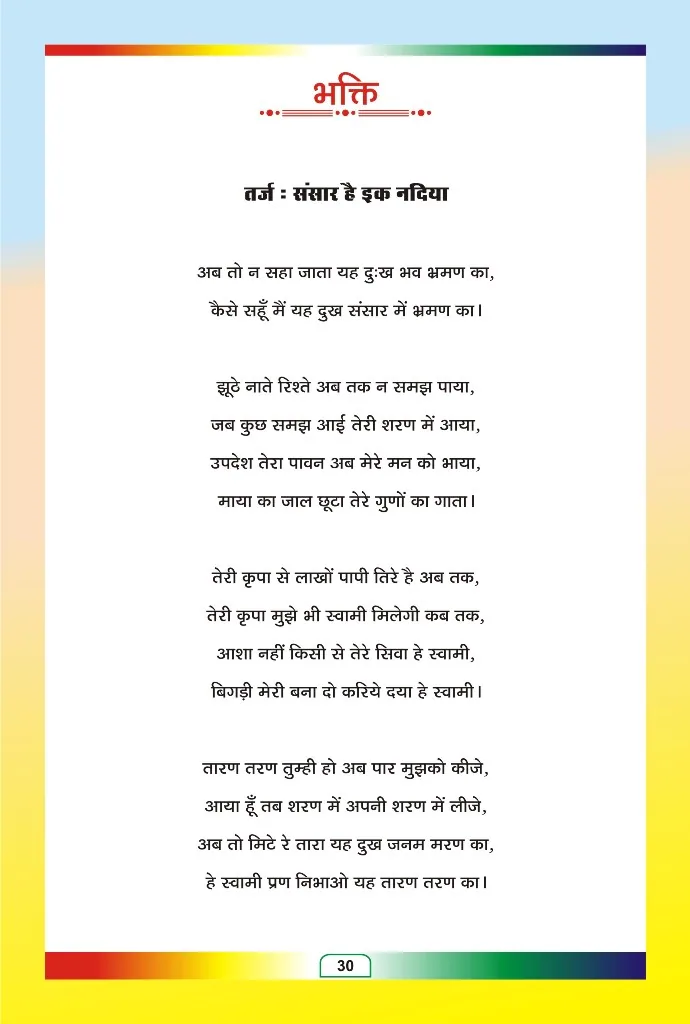 भक्ति
तर्ज : संसार है इक नदिया
अब तो न सहा जाता यह दुःख भव भ्रमण का,
कैसे सहूँ मैं यह दुख संसार में भ्रमण का।
झूठे नाते रिश्ते अब तक न समझ पाया,
जब कुछ समझ आई तेरी शरण में आया,
उपदेश तेरा पावन अब मेरे मन को भाया,
माया का जाल छूटा तेरे गुणों का गाता।
तेरी कृपा से लाखों पापी तिरे है अब तक,
तेरी कृपा मुझे भी स्वामी मिलेगी कब तक,
आशा नहीं किसी से तेरे सिवा हे स्वामी,
बिगड़ी मेरी बना दो करिये दया हे स्वामी।
तारण तरण तुम्ही हो अब पार मुझको कीजे,
आया हूँ तब शरण में अपनी शरण में लीजे,
अब तो मिटे रे तारा यह दुख जनम मरण का,
हे स्वामी प्रण निभाओ यह तारण तरण का।
30